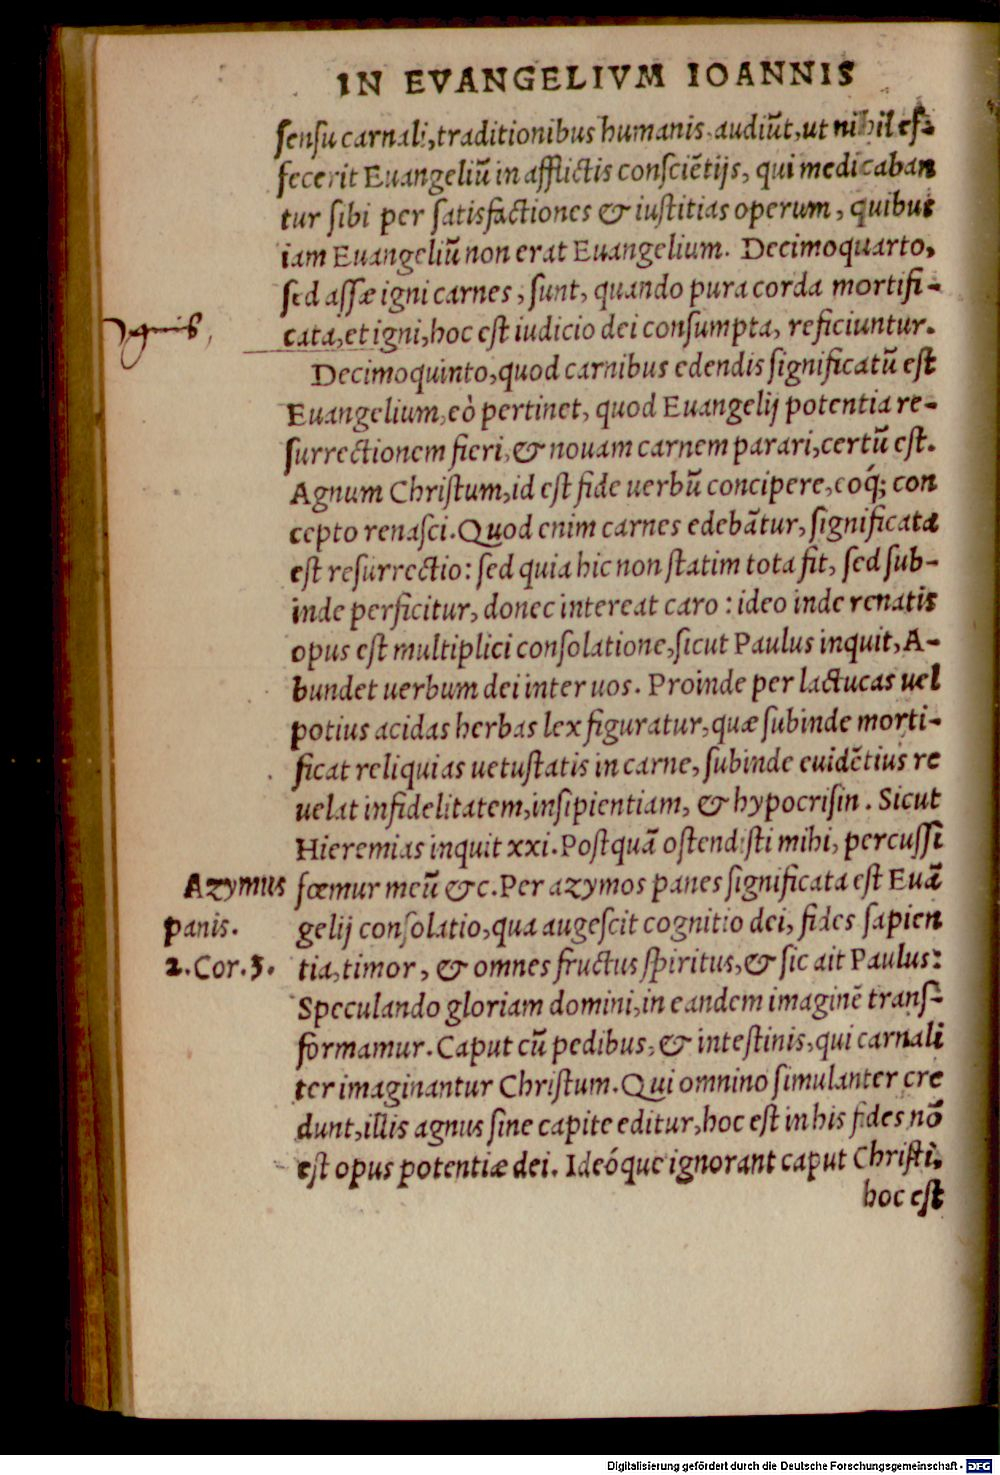 IN EVANGELIVM IOANNIS
sensu carnali, traditionibus humanis audiūt, ut nihil ef-
fecerit Euangeliū in afflictis consciētijs, qui medicaban
tur sibi per satisfactiones & iustitias operum, quibus
iam Euangeliū non erat Euangelium. Decimoquarto,
sed assæ igni carnes, sunt, quando pura corda mortifi-
cata, et igni, hoc est iudicio dei consumpta, reficiuntur.
Ignis,
Decimoquinto, quod carnibus edendis significatū est
Euangelium, eò pertinet, quod Euangelij potentia re-
surrectionem fieri, & nouam carnem parari, certū est.
Agnum Christum, id est fide uerbū concipere, eoq́; con
cepto renasci. Quod enim carnes edebātur, significata
est resurrectio: sed quia hic non statim tota fit, sed sub-
inde perficitur, donec intereat caro: ideo inde renatis
opus est multiplici consolatione, sicut Paulus inquit, A-
bundet uerbum dei inter uos. Proinde per lactucas uel
potius acidas herbas lex figuratur, quæ subinde morti-
ficat reliquias uetustatis in carne, subinde euidētius re
uelat infidelitatem, insipientiam, & hypocrisin. Sicut
Hieremias inquit xxi. Postquā ostendisti mihi, percussi
Azymus
panis.
2. Cor. 3.
fœmur meū &c. Per azymos panes significata est Euā
gelij consolatio, qua augescit cognitio dei, fides sapien
tia, timor, & omnes fructus spiritus, & sic ait Paulus:
Speculando gloriam domini, in eandem imaginē trans-
formamur. Caput cū pedibus, & intestinis, qui carnali
ter imaginantur Christum. Qui omnino simulanter cre
dunt, illis agnus sine capite editur, hoc est in his fides nō
est opus potentiæ dei. Ideóque ignorant caput Christi,
hoc est
Digitalisierung gefördert durch die Deutsche Forschungsgemeinschaft - DFG